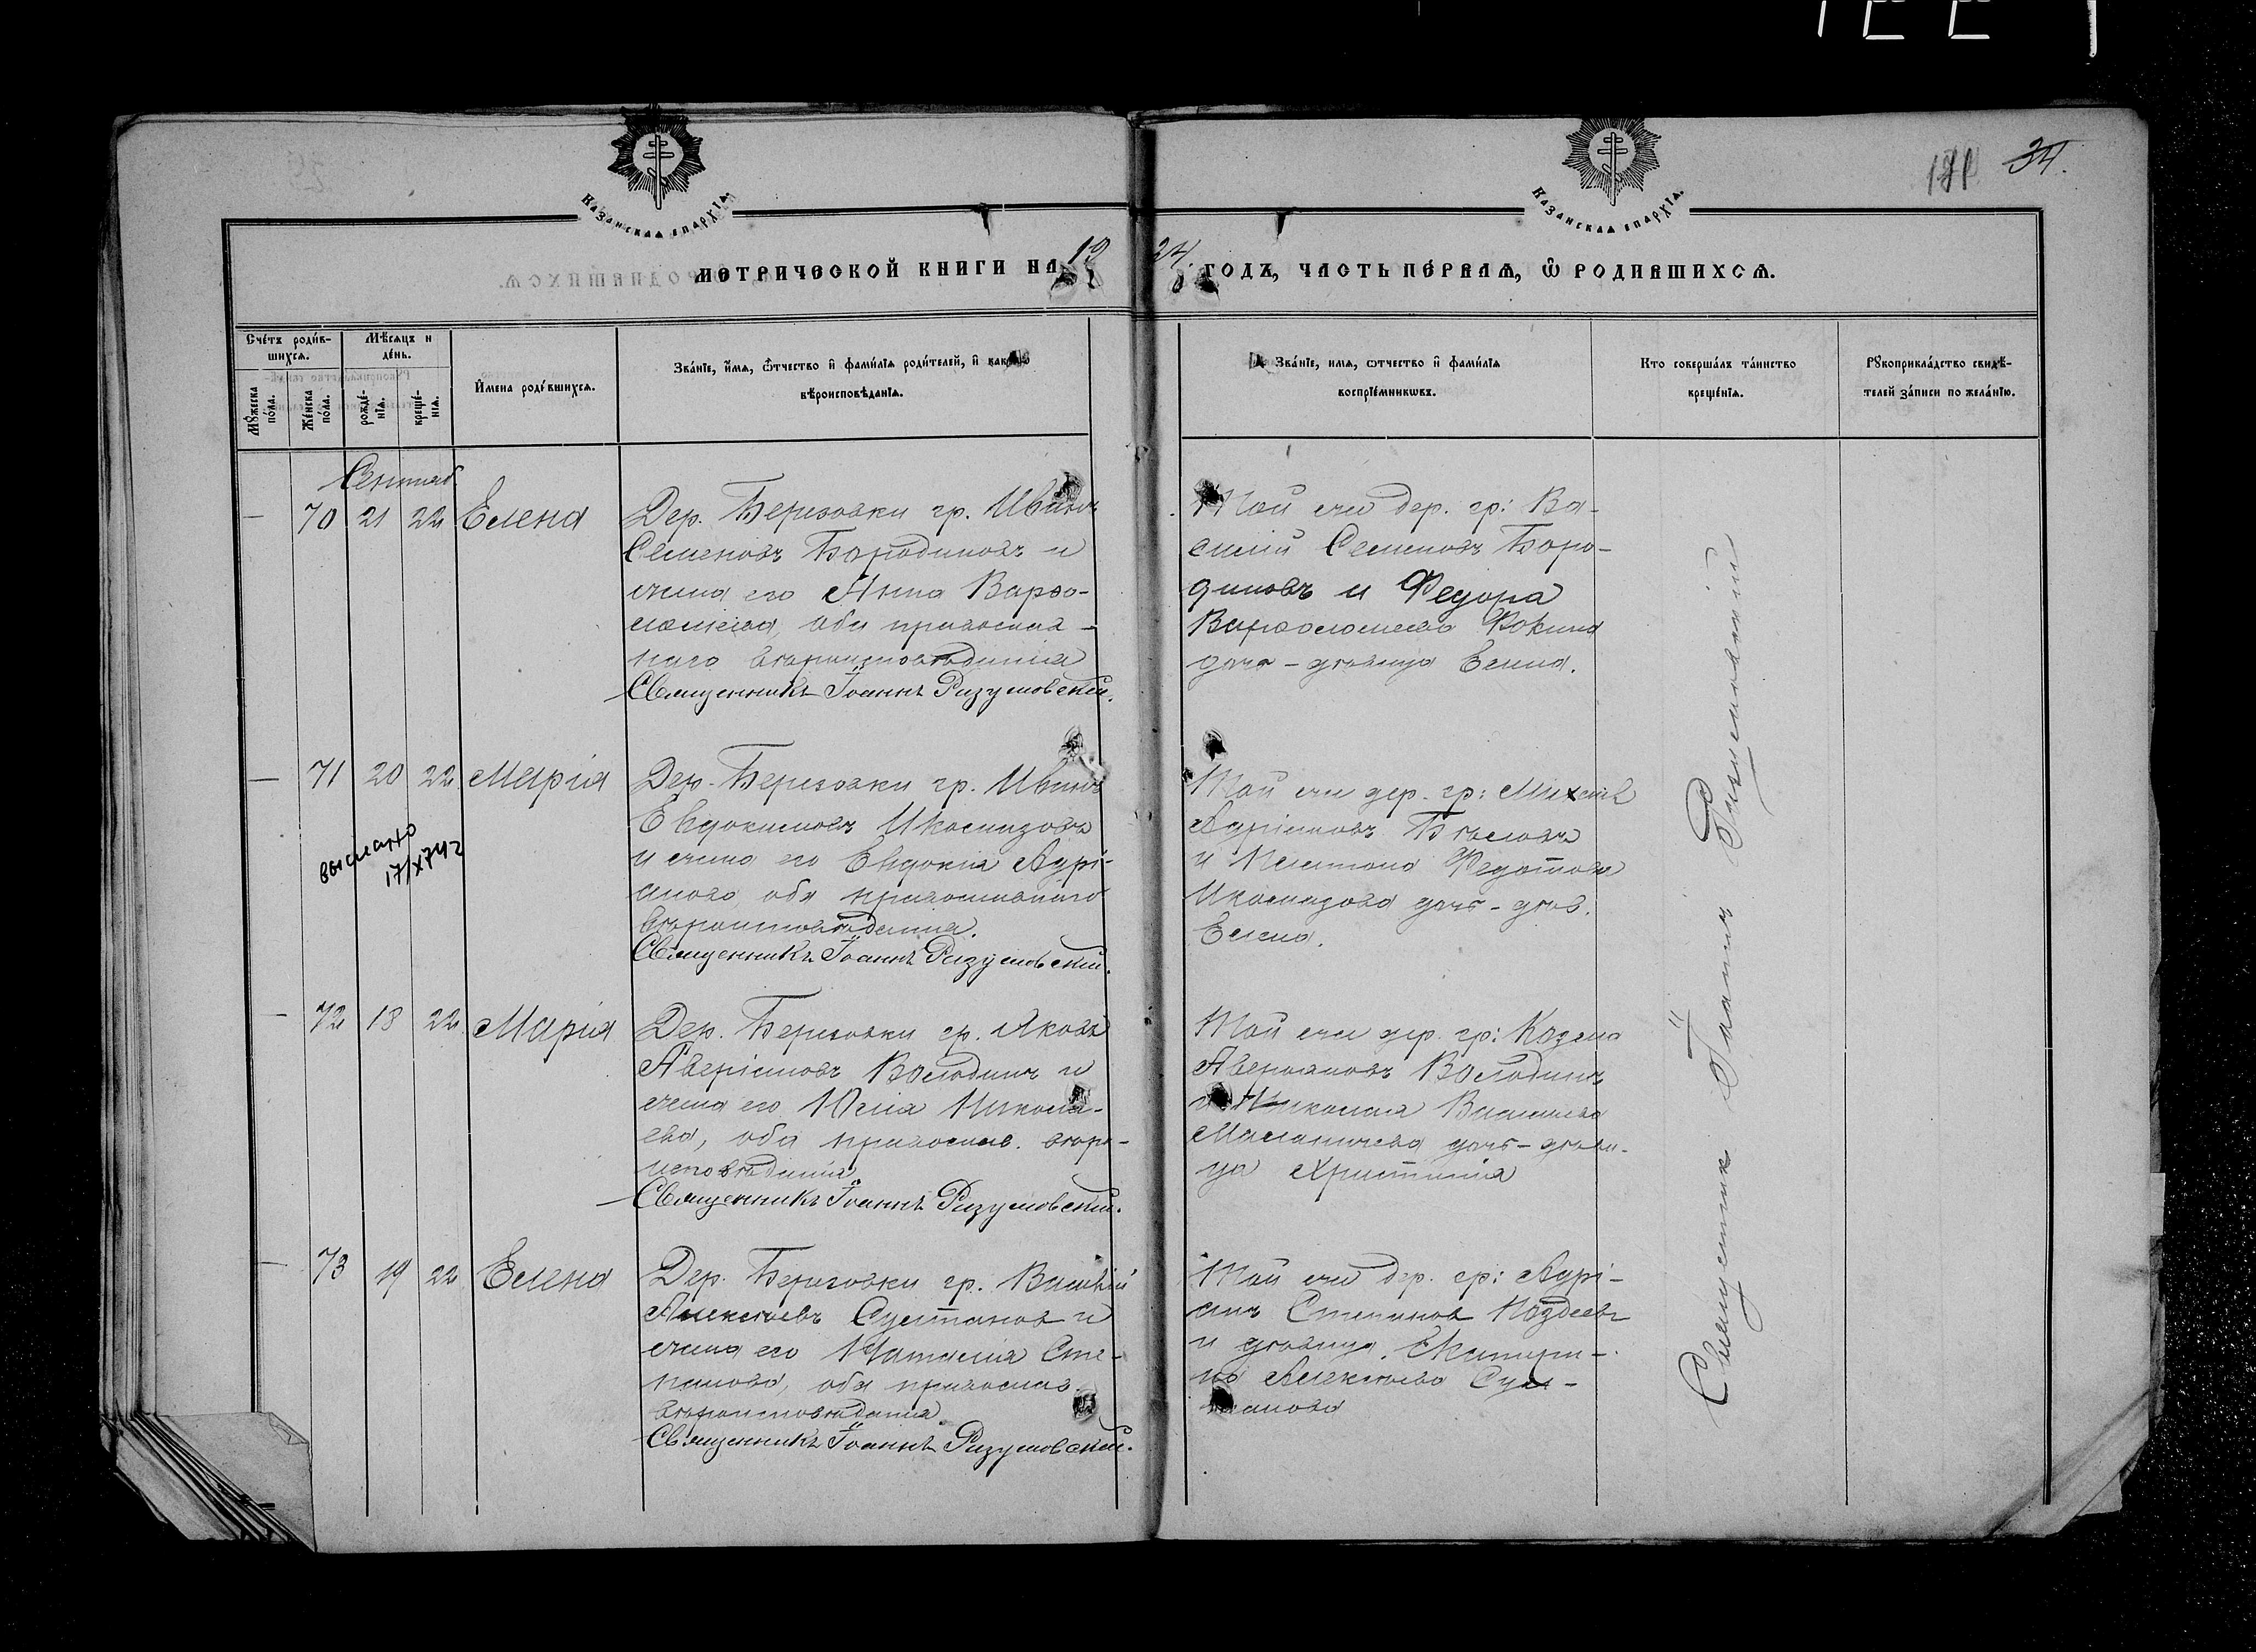 181 34.
КАЗАНСКАѦ ЕПАРХІѦ.
КАЗАНСКАѦ ЕПАРХІѦ.
МЕТРИЧЕСКОЙ КНИГИ НА 1924. ГОДЪ, ЧАСТЬ ПЕ́РВАѦ, Ѿ РОДИВШИХСѦ.
Сче́тъ роди́в-
шихсѧ.
Мꙋ́жеска по́ла.
Же́нска по́ла.
Мѣ́сѧцъ и
де́нь.
рожде́-
нїѧ.
креще́-
нїѧ.
И́мена роди́вшихсѧ.
Зва́нїе, и́мѧ, ѻ́тчество и҆ фами́лїѧ роди́телей, и҆ како́го
вѣроисповѣ́данїѧ.
Зва́нїе, имѧ, ѻтчество и҆ фами́лїѧ
воспрїе́мникѡвъ.
Кто соверша́лъ та́инство
креще́нїѧ.
Рꙋкоприкла́дство свидѣ́-
телей за́писи по жела́нїю.
Сентяб
— 70 21 22 Елена
Дер. Березовки гр. Иванъ
Семеновъ Бородиновъ и
жена его Анна Варѳо-
ломеева, оба православ-
наго вѣроисповѣданія
Священникъ Іоаннъ Разумовскій.
Той же дер. гр: Ва-
силій Семеновъ Боро-
диновъ и Федора
Варѳоломеева Фокина
дочь-дѣвица Елена.
— 71 20 22 Марія
выслано
17/X 74 г
Дер. Березовки гр. Иванъ
Евдокимовъ Икомазовъ
и жена его Евдокія Адрі-
анова, оба православнаго
вѣроисповѣданія.
Священникъ Іоаннъ Разумовскій.
Той же дер. гр: Михаилъ
Адріановъ Бѣловъ
и Федотова
Икомазова дочь-дѣв.
Елена.
— 72 18 22 Марія
Дер. Березовки гр. Яковъ
Аверіановъ Володинъ и
жена его Юлія Никола-
ева, оба православ. вѣро-
исповѣданія
Священникъ Іоаннъ Разумовскій.
Той же дер. гр: Козма
Аверьяновъ Володинъ
и Николая
дочь-дѣви-
ца Христина
— 73 19 22 Елена
Дер. Березовки гр. Василій
Алексѣевъ Султановъ и
жена его Наталія Сте-
панова, оба православ.
вѣроисповѣданія
Священникъ Іоаннъ Разумовскій.
Той же дер. гр: Адрі-
анъ Степановъ Поздеевъ
и дѣвица Екатери-
на Алексѣева Сул-
танова
Священникъ Іоаннъ Разумовскій